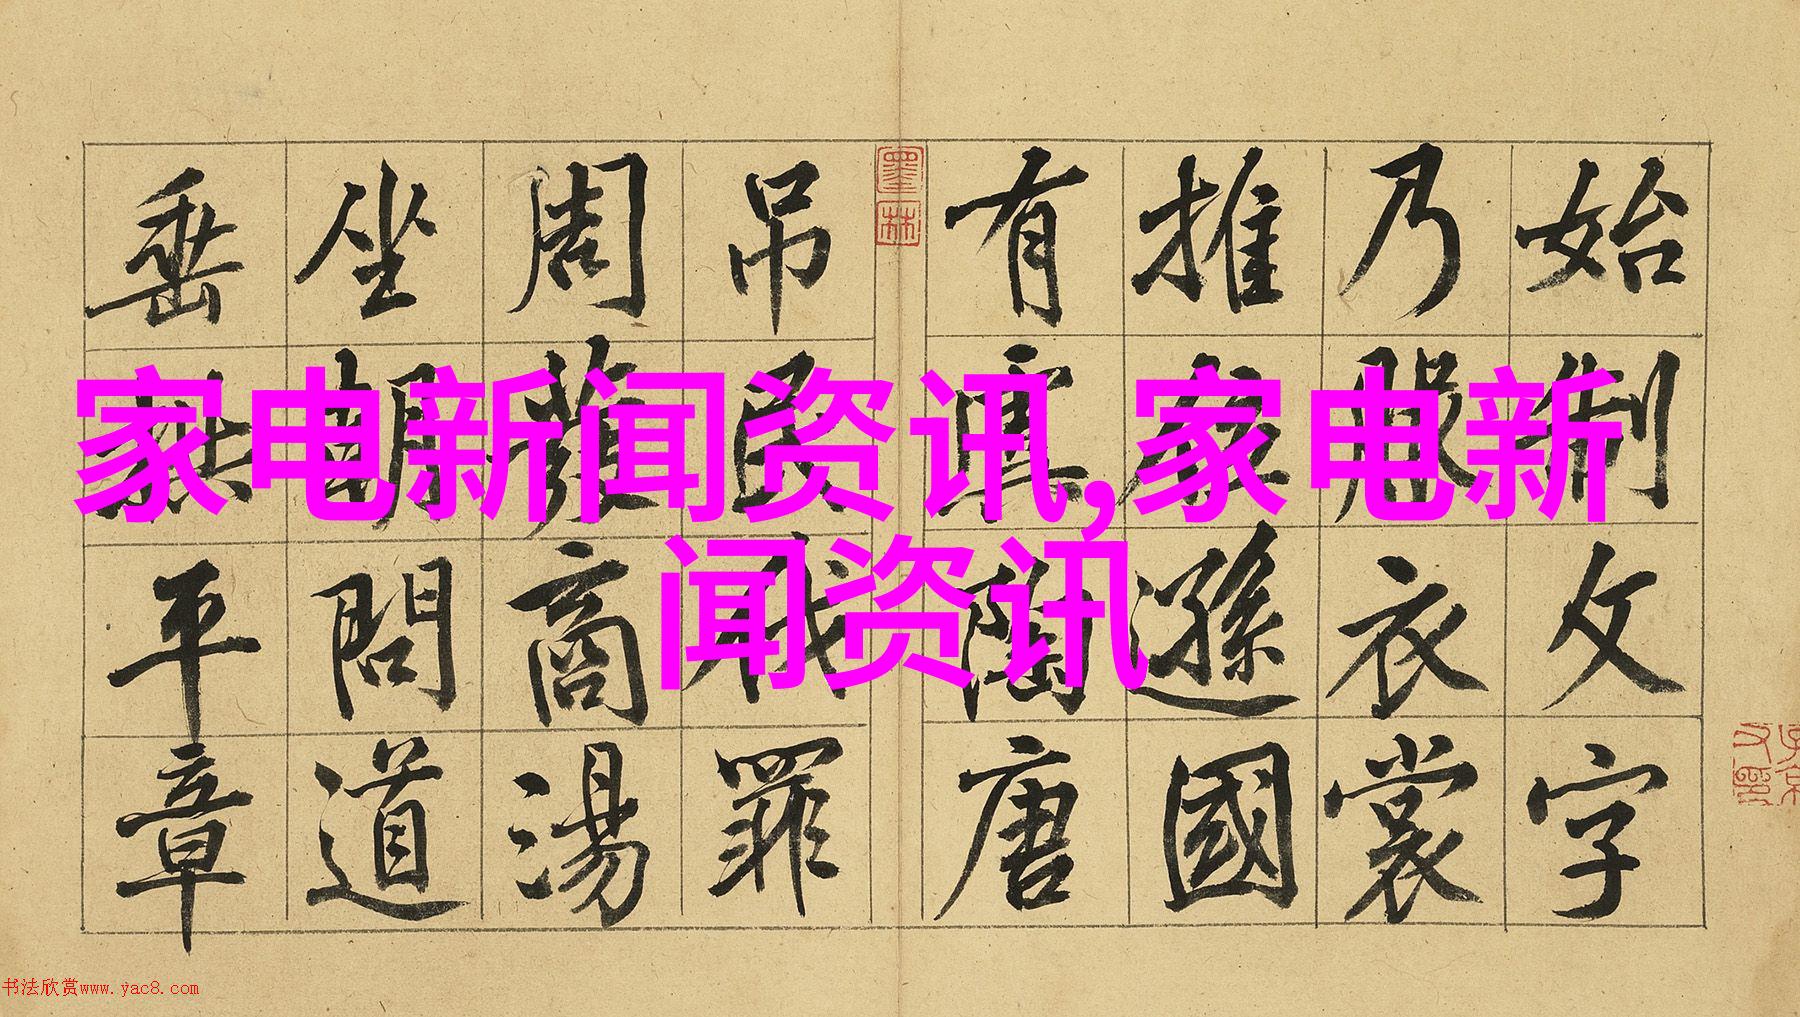 家电新闻资讯,家电新
闻资讯
始制文字
乃服衣裳
推遜國
有虞陶唐
吊民伐罪
周發商湯
坐朝問道
垂拱平章
墨林
书法欣赏www.yac8.com